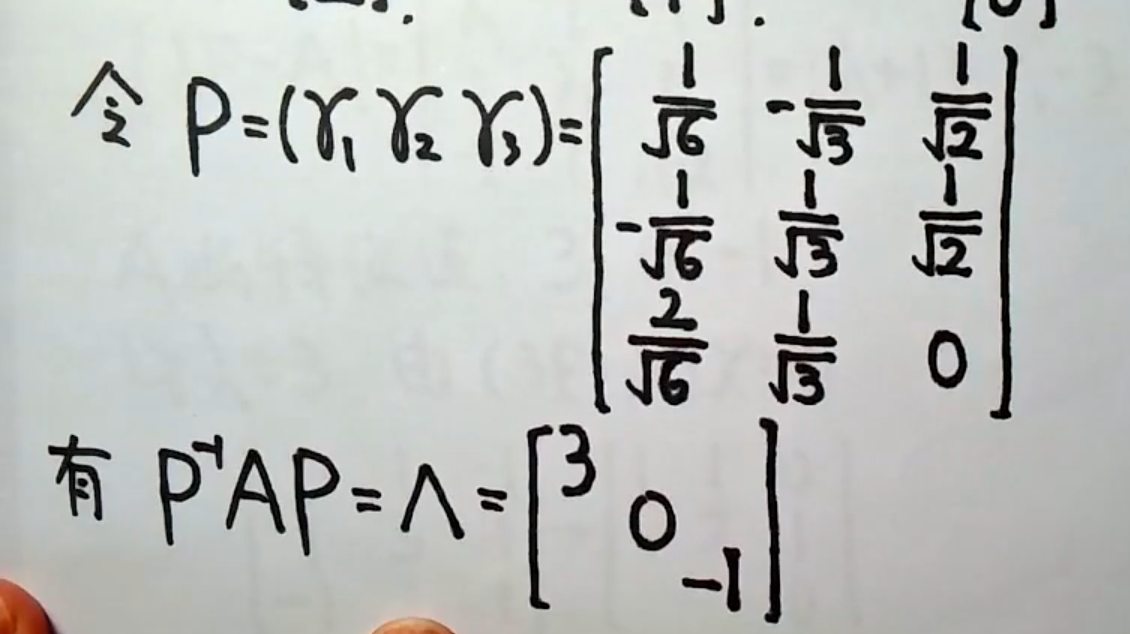 令 P=(γ₁ γ₂ γ₃)=[1/√6 -1/√3 1/√2
-1/√6 1/√3 1/√2
2/√6 1/√3 0]
有 P⁻¹AP=Λ=[3
0
-1]